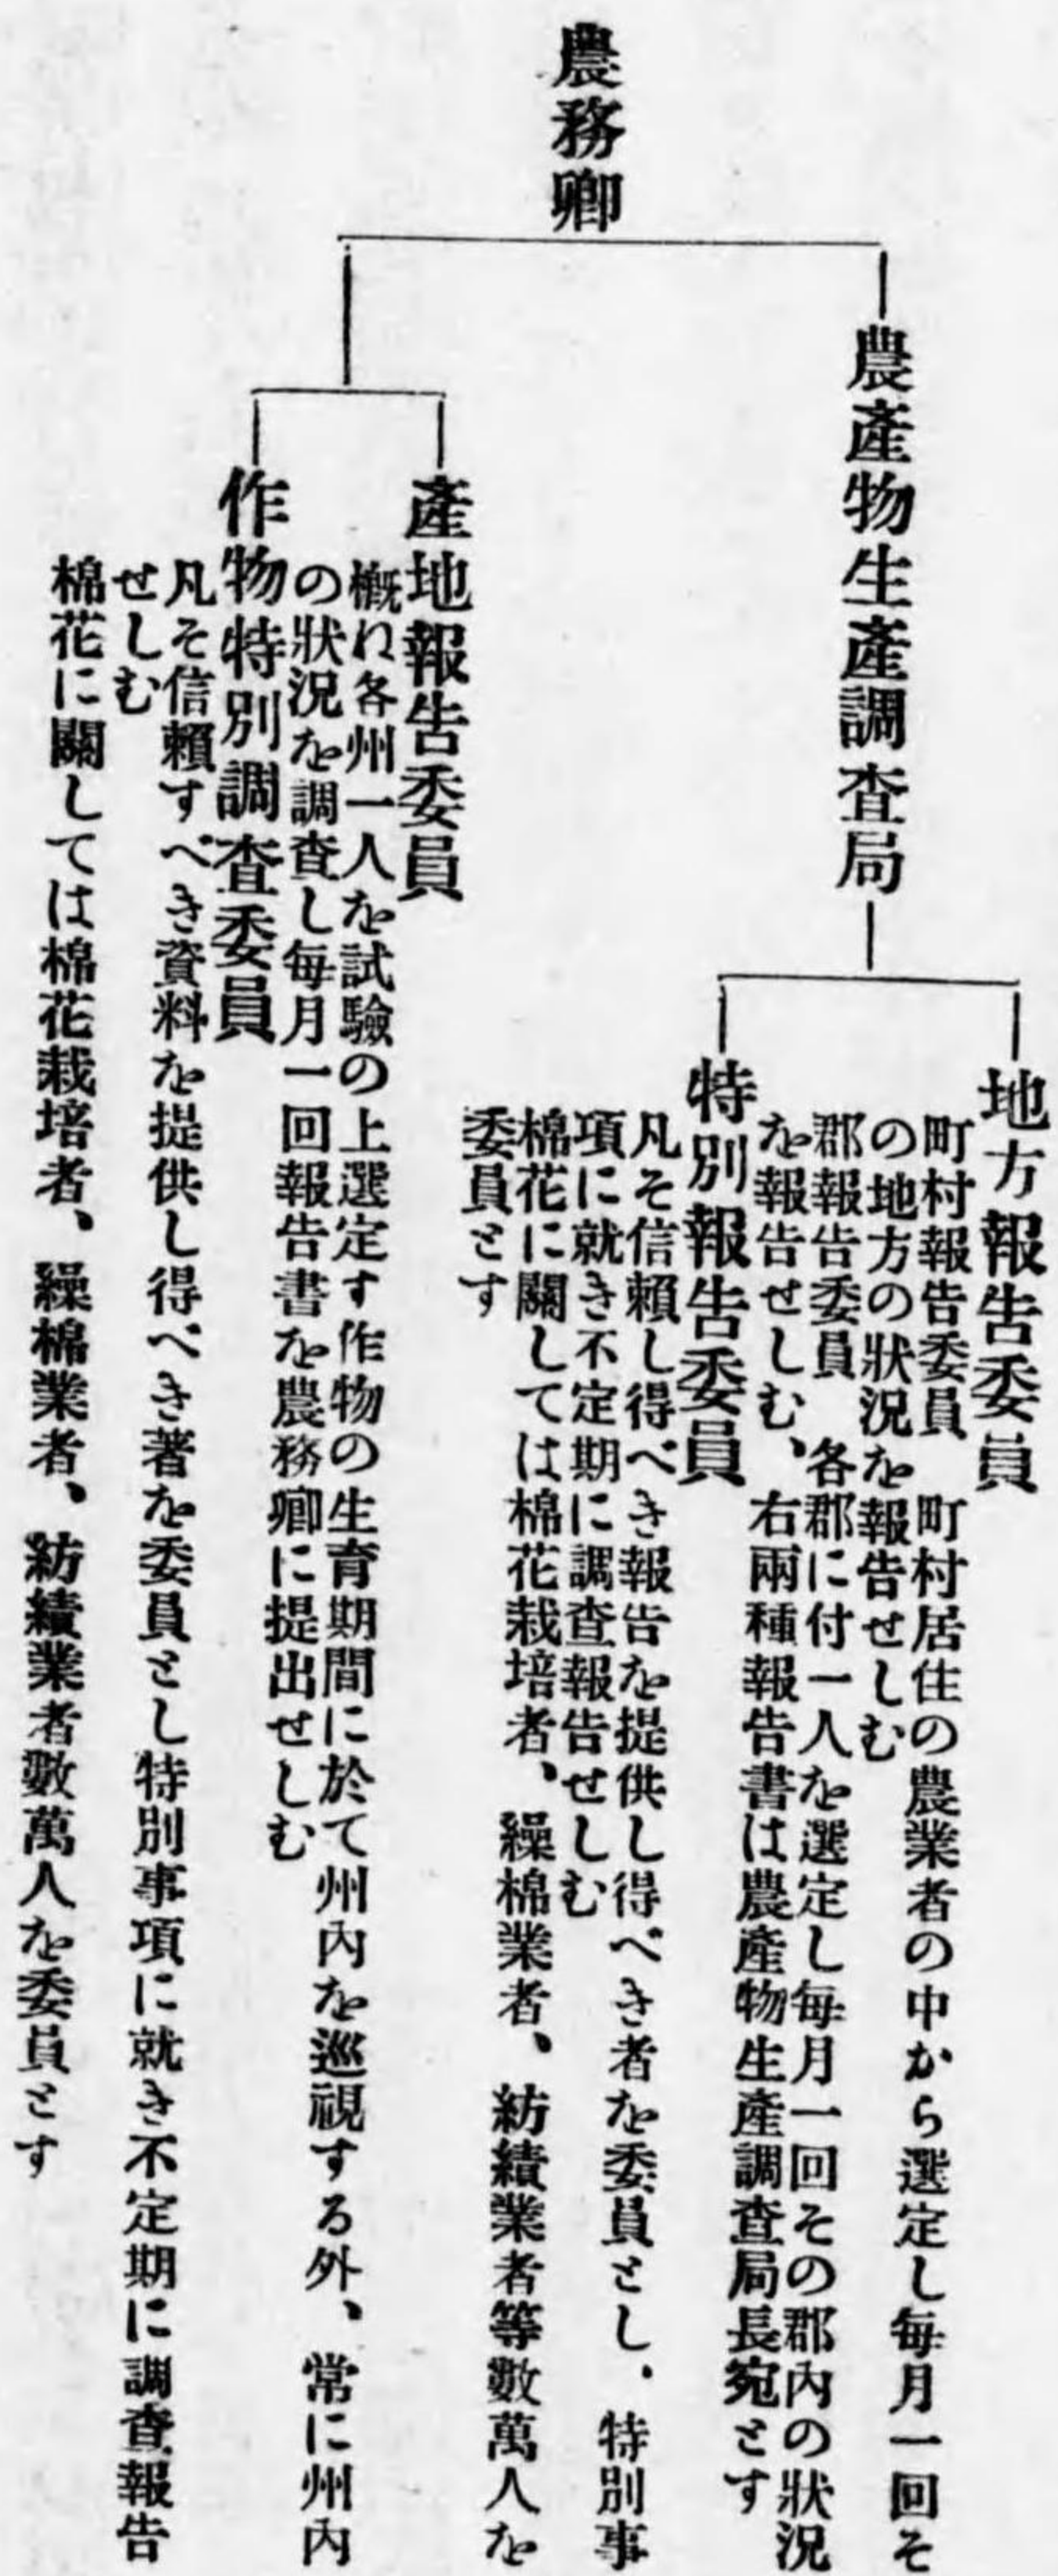 農務卿
農產物生產調査局
地方報吿委員
町村報吿委員　町村居住の農業者の中から選定し每月一回そ
の地方の狀況を報吿せしむ
郡報吿委員　各郡に付一人を選定し每月一回その郡內の狀況
を報吿せしむ、右兩種報吿書は農產物生產調查局長宛とす
特別報吿委員
凡そ信賴し得べき報吿を提供し得べき者を委員とし、特別事
項に就き不定期に調查報吿せしむ
棉花に關しては棉花栽培者、繰棉業者、紡績業者等數萬人を
委員とす
產地報吿委員
槪ね各州一人を試驗の上選定す作物の生育期間に於て州內を巡視する外、常に州內
の狀況を調查し每月一回報吿書を農務卿に提出せしむ
作物特別調查委員
凡そ信賴すべき資料を提供し得べき著を委員とし特別事項に就き不定期に調查報吿
せしむ
棉花に關しては棉花栽培者、繰棉業者、紡績業者數萬人を委員とす